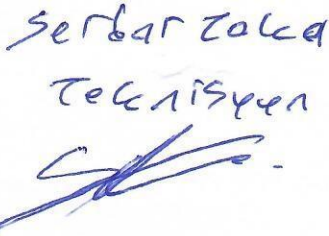 Serdar Toka
Teknisyen